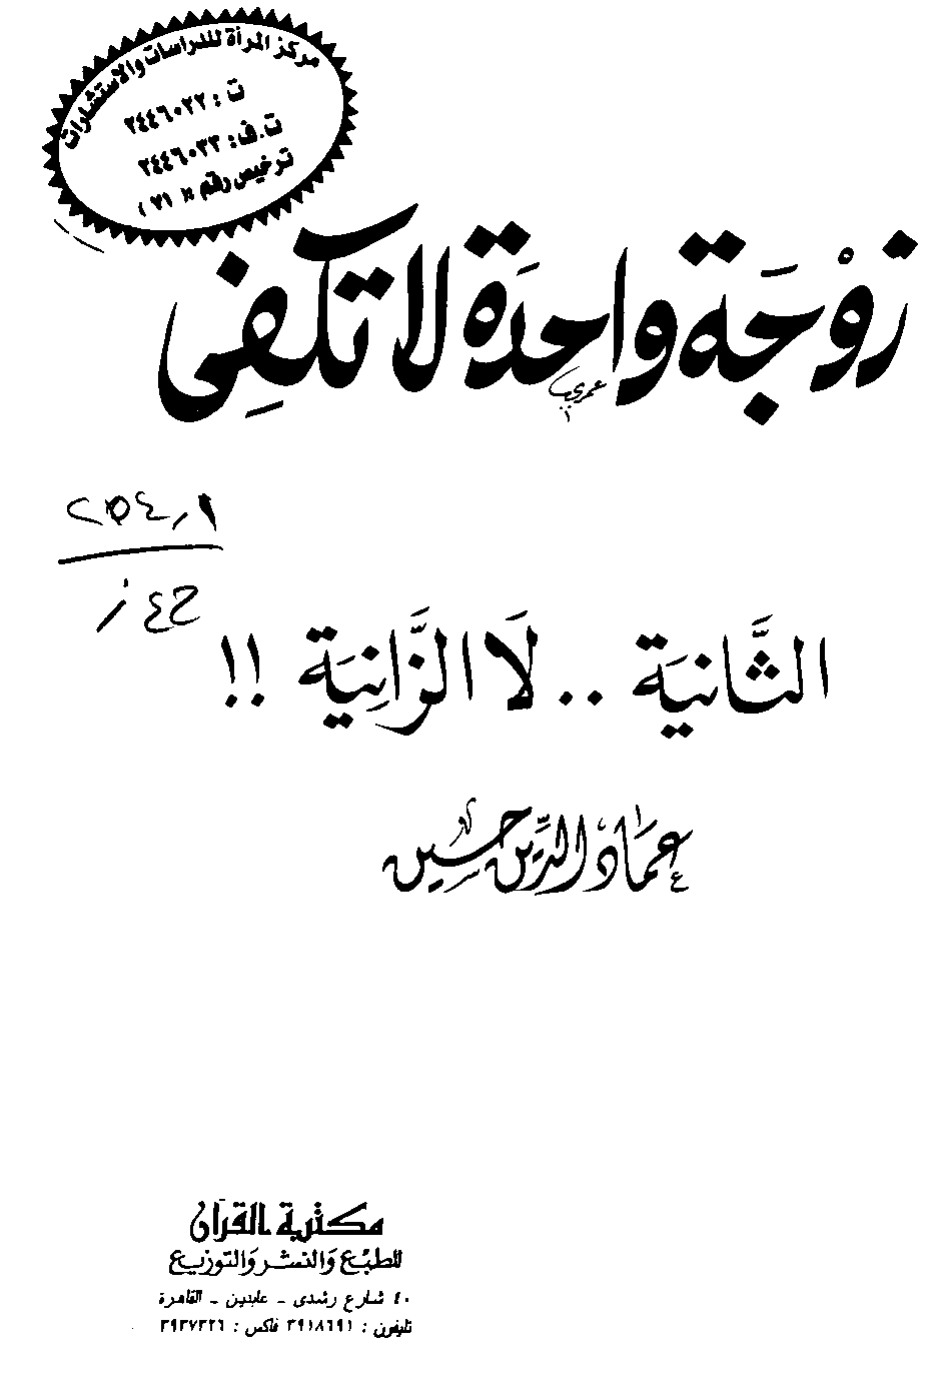 مركز المرأة للدراسات والاستشارات
ت : ٢٤٤٦٠٢٢
ت.ف: ٢٤٤٦٠٣٣
ترخيص رقم ( ٧١ )
زوْجَة واحدَة لا تكفِى
عمري
٢٥٤,٩
الثَّانيَة .. لَا الزَّانِيَة !!
عماد الدين حسين
مكتبة القرآن
للطبْع وَالنشر وَالتوزيع
٤٠ شارع رشدى - عابدين - القاهرة
تليفون : ٣٩١٨٦٩١ فاكس : ٣٩٣٧٣٢٦